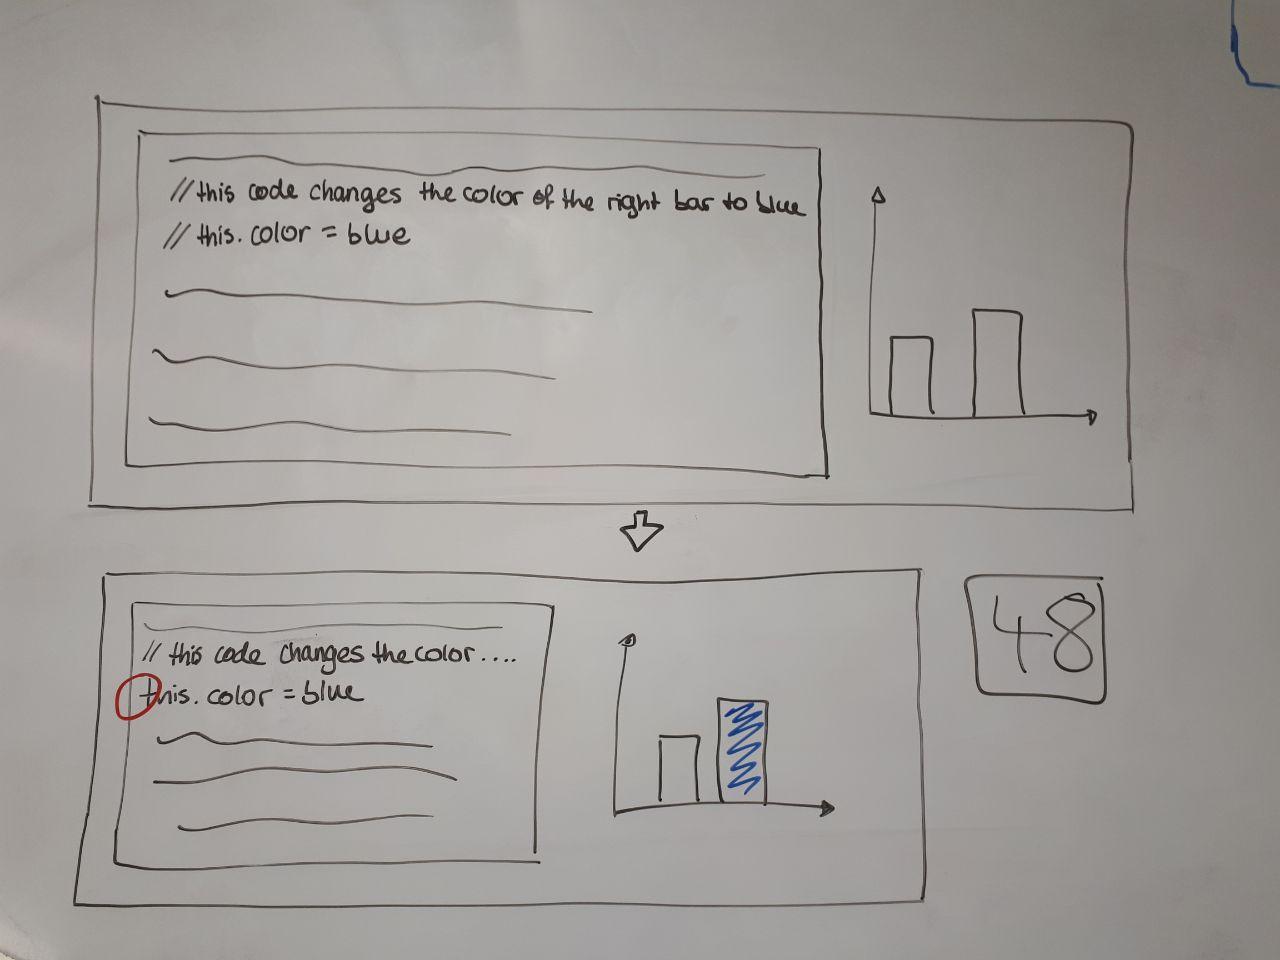 // this code changes the color of the right bar to blue
// this.color = blue
// this code changes the color....
this.color = blue
48